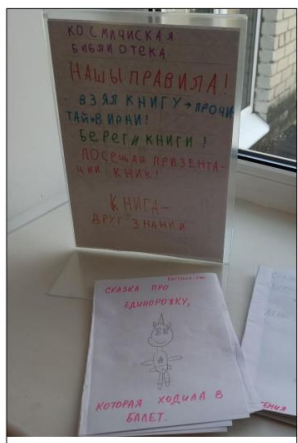 КОСМИЧИСКАЯ
БИБЛИОТЕКА
НАШЫ ПРАВИЛА!
ВЗЯЛ КНИГУ → ПРОЧИ
ТАЙ → ВИРНИ!
БЕРЕГИ КНИГИ!
ПОСЕЩАЙ ПРИЗЕНТА-
ЦИИ КНИГ!
КНИГА-
ДРУГ ЗНАНИЙ
СКАЗКА ПРО
ЕДИНОРОЖКУ,
КОТОРАЯ ХОДИЛА В
БАЛЕТ.